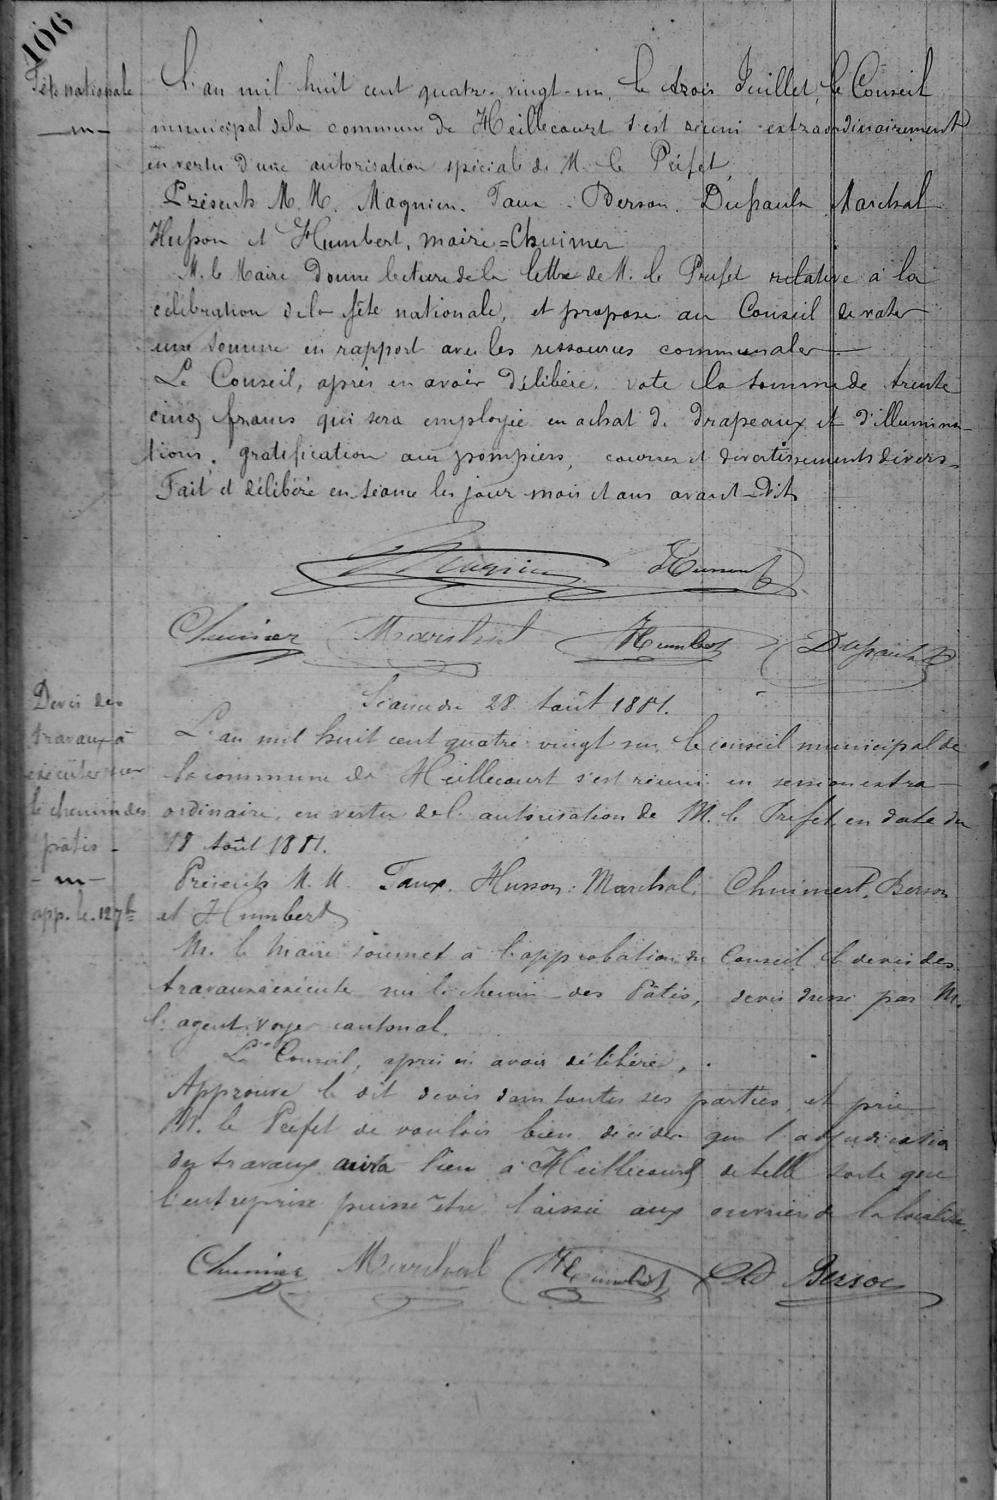 106
Fête nationale
L'an mil huit cent quatre-vingt-un, le trois Juillet, le Conseil
municipal de la commune de Heillecourt s'est réuni extraordinairement
en vertu d'une autorisation spéciale de M. le Préfet,
Présents M. M. Magnien. Taux. Berson. Dupaulx Marchal
Husson et Humbert, maire = Chuimer
M. le Maire donne lecture de la lettre de M. le Préfet relative à la
célébration de la fête nationale, et propose au Conseil de voter
une somme en rapport avec les ressources communales
Le Conseil, après en avoir délibéré, vote la somme de trente
cinq francs qui sera employée en achat de drapeaux et d'illumina-
tions, gratification aux pompiers, courses et divertissements divers =
Fait et délibéré en séance les jour mois et ans avant-dits
Magnien Husson
Chuimer Marchal Humbert Dupaulx
Séance du 28 Août 1881.
Devis des
travaux à
exécuter sur
le chemin des
pâtis -
app. le. 12 7bre
L'an mil huit cent quatre-vingt un, le conseil municipal de
la commune de Heillecourt s'est réuni en session extra-
ordinaire, en vertu de l'autorisation de M. le Préfet en date du
18 Août 1881.
Présents M. M. Taux, Husson, Marchal, Chuimert, Berson
et Humbert
M. le Maire soumet à l'approbation du Conseil, le devis des
travaux à exécuter sur le chemin des Pâtis, devis dressé par M.
l'agent-voyer cantonal.
Le Conseil, après en avoir délibéré,
Approuve le dit devis dans toutes ses parties, et prie
M. le Préfet de vouloir bien décider que l'adjudication
des travaux aura lieu à Heillecourt de telle sorte que
l'entreprise puisse être laissée aux ouvriers de la localité.
Chuimer Marchal Humbert Berson